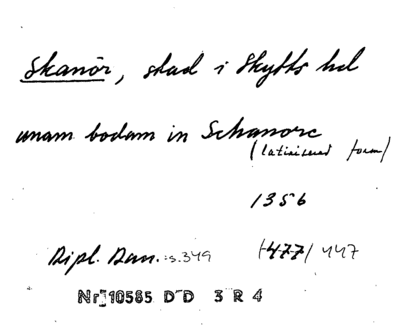 Skanör, stad i Skytts hd
unam bodam in Schanore
(latiniserad form)
1356
Dipl. Dan. s. 349 (477) 447
Nr 10585 DD 3 R 4